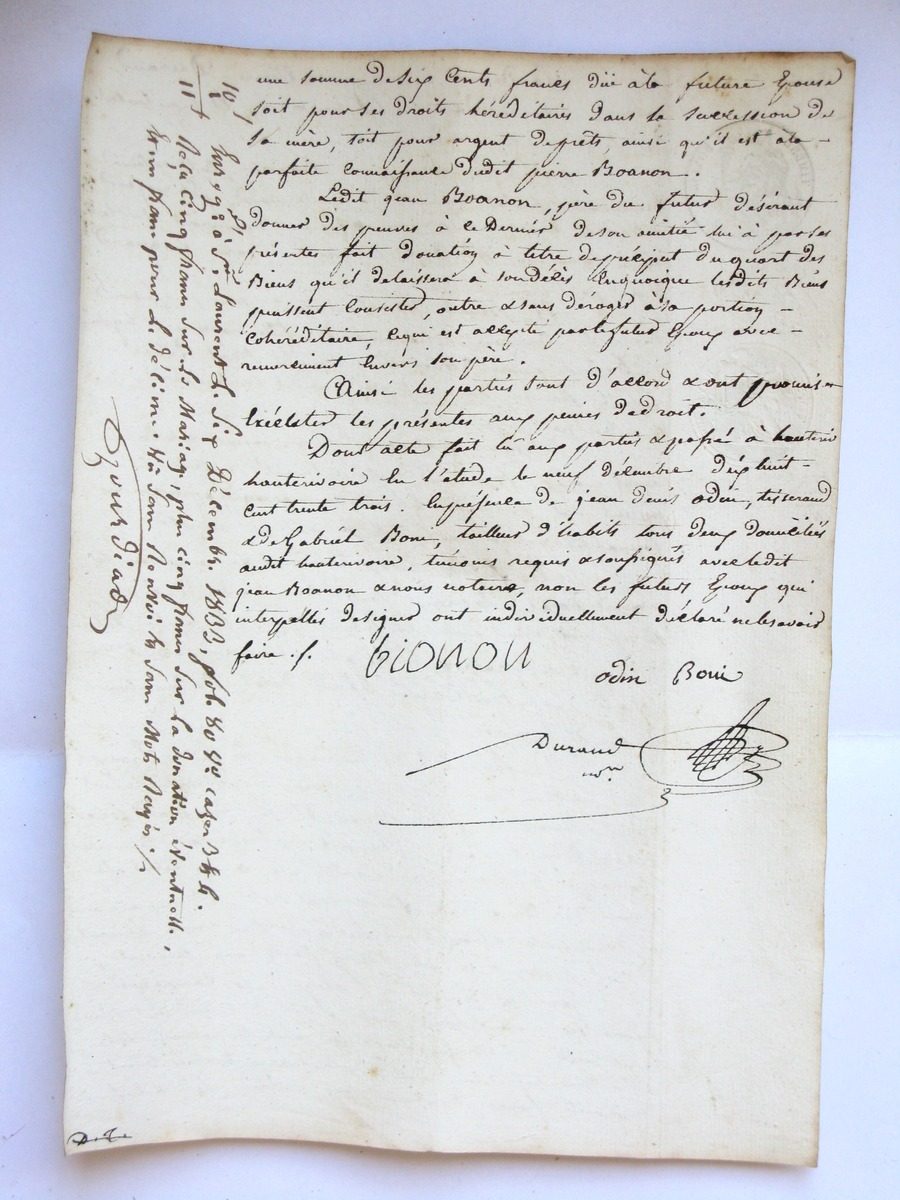 une somme de six Cents francs düe à la future Epouse
soit pour ses droits héréditaires dans la succession de
sa mère, soit pour argent de prêts, ainsi qu'il est à la -
parfaite connaissance dudit pierre Boanon.
Ledit jean Boanon, père du futur désirant
donner des preuves à ce Dernier de son amitié lui à par les
présentes fait donation à titre de préciput du quart des
Biens qu'il délaissera à son Décès Enquoique lesdits Biens
puissent Consister, outre & sans déroger à sa portion -
Cohéréditaire, cequi est accepté par le futur Epoux avec -
remerciment Envers son père.
Ainsi les parties sont d'accord & ont promis
Exécuter les présentes aux peines de droit.
Dont acte fait lu aux parties & passé à hauterivoire
hauterivoire En l'étude le neuf Décembre dix huit -
cent trente trois. En présence de jean denis Odin, tisserand
& de Gabriel Boni, tailleur d'habits tous deux domiciliés
audit hauterivoire, témoins requis & soussignés avec ledit
jean Boanon & nous notaire, non les futurs Epoux qui
interpellés de signer ont individuellement déclaré ne le savoir
faire ./.
bionon
odin Boni
Durand
nre
10
11
Enregé à St Laurent Le Six Décembre 1833, fol. 80 vo case 3 & 4.
Reçu Cinq francs sur le Mariage, plus cinq francs sur la donation éventuelle,
& un franc pour Le décime. Sans Renvoi & sans Mots Rayés ./.
D. T.